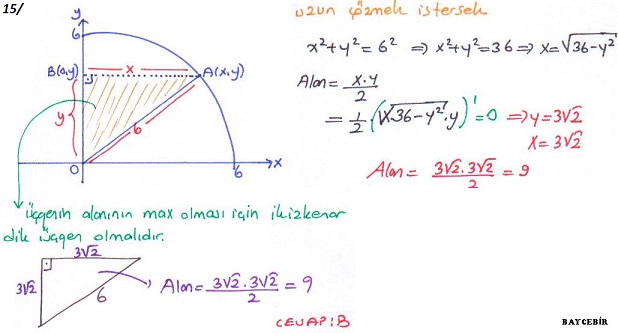 15/
uzun çözmek istersek
y
6
x² + y² = 6² ⇒ x² + y² = 36 ⇒ x = √36-y²
B(0,y)
x
A(x,y)
Alan = x.y / 2
y
6
= 1/2 . (√36-y² . y)' = 0 ⇒ y = 3√2
x = 3√2
O
6
x
Alan = 3√2 . 3√2 / 2 = 9
üçgenin alanının max olması için ikizkenar
dik üçgen olmalıdır.
3√2
3√2
6
Alan = 3√2 . 3√2 / 2 = 9
CEVAP: B
BAYCEBİR